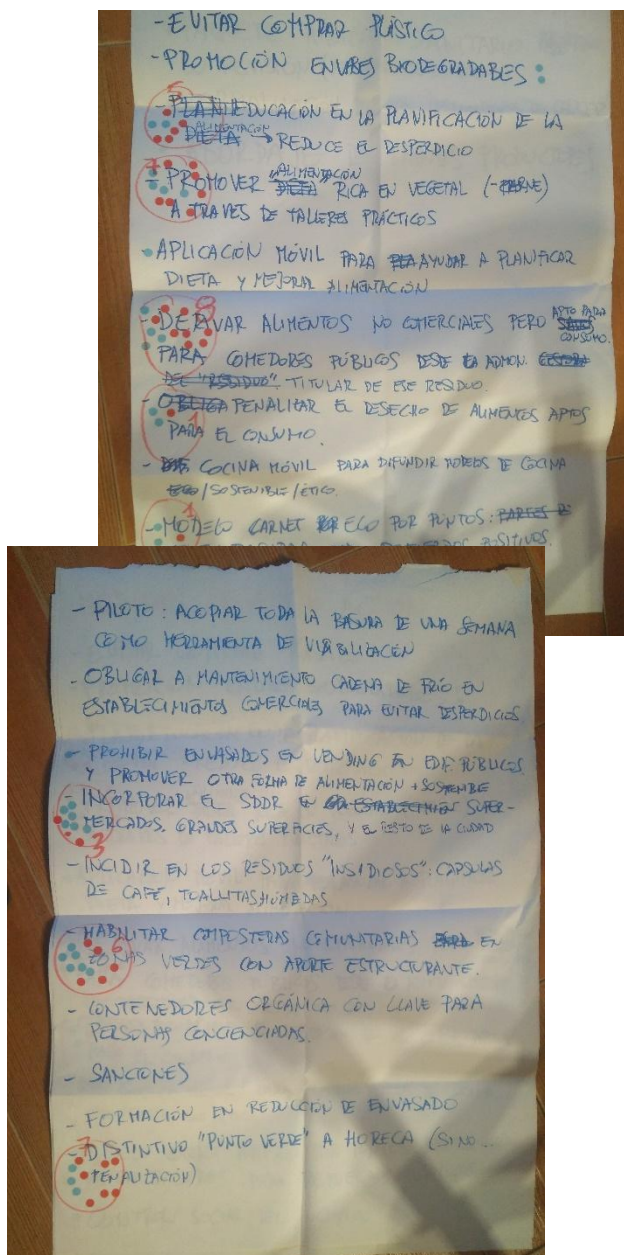 - EVITAR COMPRAR PLÁSTICO
- PROMOCIÓN ENVASES BIODEGRADABLES
5
- PLANI EDUCACIÓN EN LA PLANIFICACIÓN DE LA
DIETA ALIMENTACIÓN → REDUCE EL DESPERDICIO
- PROMOVER DIETA ALIMENTACIÓN RICA EN VEGETAL (-CARNE)
A TRAVES DE TALLERES PRÁCTICOS
- APLICACIÓN MÓVIL PARA AYUDAR A PLANIFICAR
DIETA Y MEJORAR ALIMENTACIÓN
- DERIVAR ALIMENTOS NO COMERCIALES PERO APTO PARA CONSUMO.
PARA COMEDORES PÚBLICOS DESDE LA ADMON.
DE "RESIDUO" TITULAR DE ESE RESIDUO.
- OBLIGA PENALIZAR EL DESECHO DE ALIMENTOS APTOS
PARA EL CONSUMO.
1
- COCINA MÓVIL PARA DIFUNDIR MODELOS DE COCINA
ECO/SOSTENIBLE/ÉTICO.
1
- MODELO CARNET ECO POR PUNTOS:
POSITIVOS.
- PILOTO: ACOPIAR TODA LA BASURA DE UNA SEMANA
COMO HERRAMIENTA DE VISIBILIZACIÓN
- OBLIGAR A MANTENIMIENTO CADENA DE FRÍO EN
ESTABLECIMIENTOS COMERCIALES PARA EVITAR DESPERDICIOS
- PROHIBIR ENVASADOS EN VENDING EN EDIF. PÚBLICOS
Y PROMOVER OTRA FORMA DE ALIMENTACIÓN + SOSTENIBLE
- INCORPORAR EL SDDR EN ESTABLECIMIEN SUPER-
MERCADOS, GRANDES SUPERFICIES, Y EL RESTO DE LA CIUDAD
3
- INCIDIR EN LOS RESIDUOS "INSIDIOSOS": CAPSULAS
DE CAFÉ, TOALLITAS HÚMEDAS
- HABILITAR COMPOSTERAS COMUNITARIAS PARA EN
6
ZONAS VERDES CON APORTE ESTRUCTURANTE.
- CONTENEDORES ORGÁNICA CON LLAVE PARA
PERSONAS CONCIENCIADAS.
- SANCIONES
- FORMACIÓN EN REDUCCIÓN DE ENVASADO
7
- DISTINTIVO "PUNTO VERDE" A HORECA (SI NO...
PENALIZACIÓN)